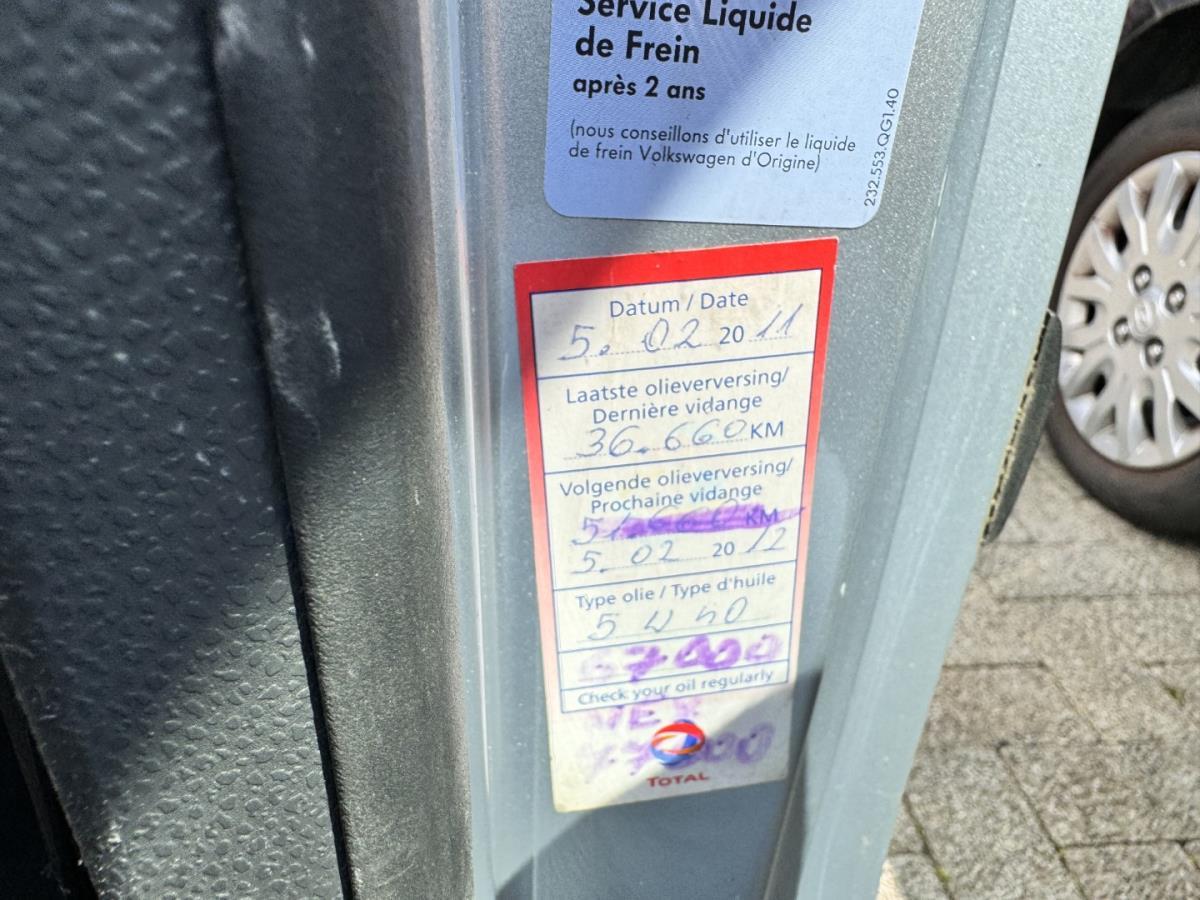 Service Liquide
de Frein
après 2 ans
(nous conseillons d'utiliser le liquide
de frein Volkswagen d'Origine)
232.553.QG1.40
Datum / Date
5. 02 20 11
Laatste olieverversing/
Dernière vidange
36.660 KM
Volgende olieverversing/
Prochaine vidange
KM
5. 02 20 12
Type olie / Type d'huile
5 W 40
Check your oil regularly
TOTAL